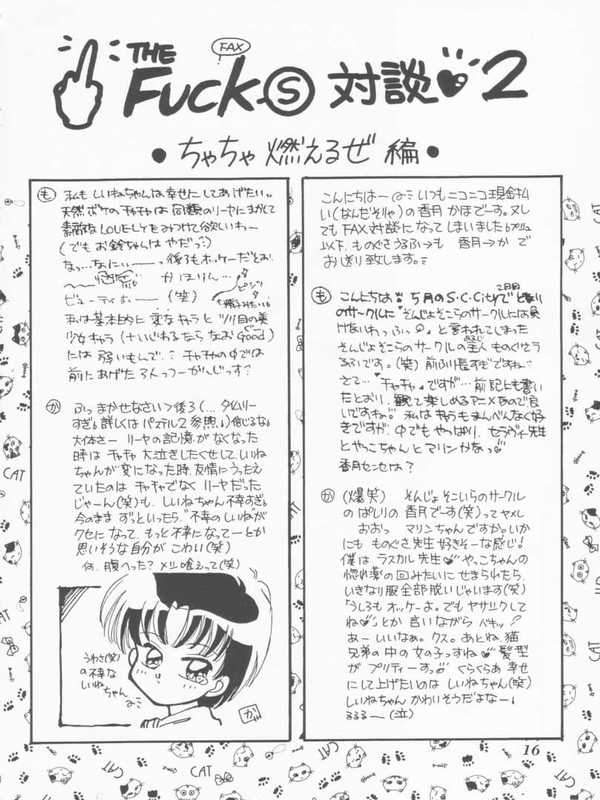 THE
FAX
FuckⓈ対談 2
•ちゃちゃ燃えるぜ 編•
こんにちは〜 いつもニコニコ現金払
い(なんだそりゃ)の香月 かほでーす。又し
てもFAX対談になってしまいました
以下、ものぐさうふ→も 香月→か で
お送り致します。
も こんにちは 5月のS・C・Cityで 2日目 となり
のサークルに
そんじょそこらのサークルの ものぐさう
(笑) 前ふり長すぎですね
さて… "チャチャ"ですが… 前記にも書い
たとおり、観て楽しめるアニメなので良
いですね 私はキャラもまんべんなく好
きですが、中でもやっぱり、セラヴィー先生
とやっこちゃんとマリンかなっ
香月センセは?
か (爆笑) そんじょそこいらのサークル
のぱしりの 香月でーす(笑)ってヤメし
おおっ マリンちゃんですか。いか
にも ものぐさ先生 好きそーな感じ!
僕は ラスカル先生 やっこちゃんの
惚れ薬の回みたいに せまられたら
いきなり服全部脱いじゃいます(笑)
「うしろもオッケーよ。でもヤサシクして
ね」とか 言いながら
あーいいなぁ。クス。あとね、猫
兄弟の中の女の子っすね 髪型
が プリティーすっ ぐらぐらぁ 幸せ
にして上げたいのは しいねちゃん(笑)
しいねちゃん かわいそうだよなー!
ううう〜(泣)
も 私も しいねちゃんは幸せにしてあげたい。
天然ボケのチャチャは 同類のリーヤにまかして
素敵なLOVELYをみつけて欲しいわー
(でもお鈴ちゃんは やだっ)
なっ…なにぃぃ―― 後3もオッケーだとお
かほりん…
ビューティホー――(笑)
私は基本的に 変なキャラと ツリ目の美
少女キャラ(+いじわるならなお Good)
には 弱いもんで チャチャの中では
前にあげた3人っつーかんじっす?
か ふっ まかせなさいっ後3(… タイムリー
すぎ。詳しくはパステル2参照。)信じるな。
大体さー リーヤの記憶がなくなった
時は チャチャ 大泣きしたくせして、しいね
ちゃんが 変になった時、友情にうったえ
ていたのは チャチャでなく リーヤだった
じゃーん(笑)も、しいねちゃん不幸すぎる
今のまま ずっといったら "不幸のしいね"が
クセになって、もっと不幸になってーとか
思いそうな自分が こわい(笑)
何、腹へった? メシ喰えって(笑)
うわさ(笑)
の不幸な
しいねちゃん
か
CAT
CAT
CAT
CAT
16